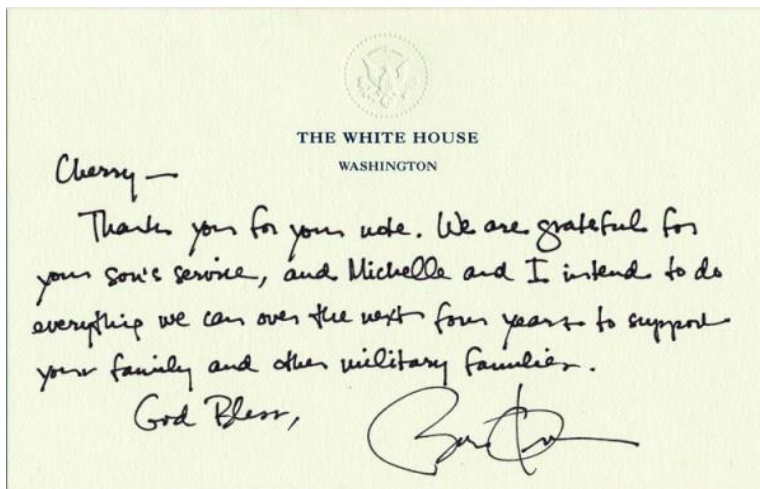 THE WHITE HOUSE
WASHINGTON
Cherry—
Thank you for your note. We are grateful for
your son's service, and Michelle and I intend to do
everything we can over the next four years to support
your family and other military families.
God Bless,